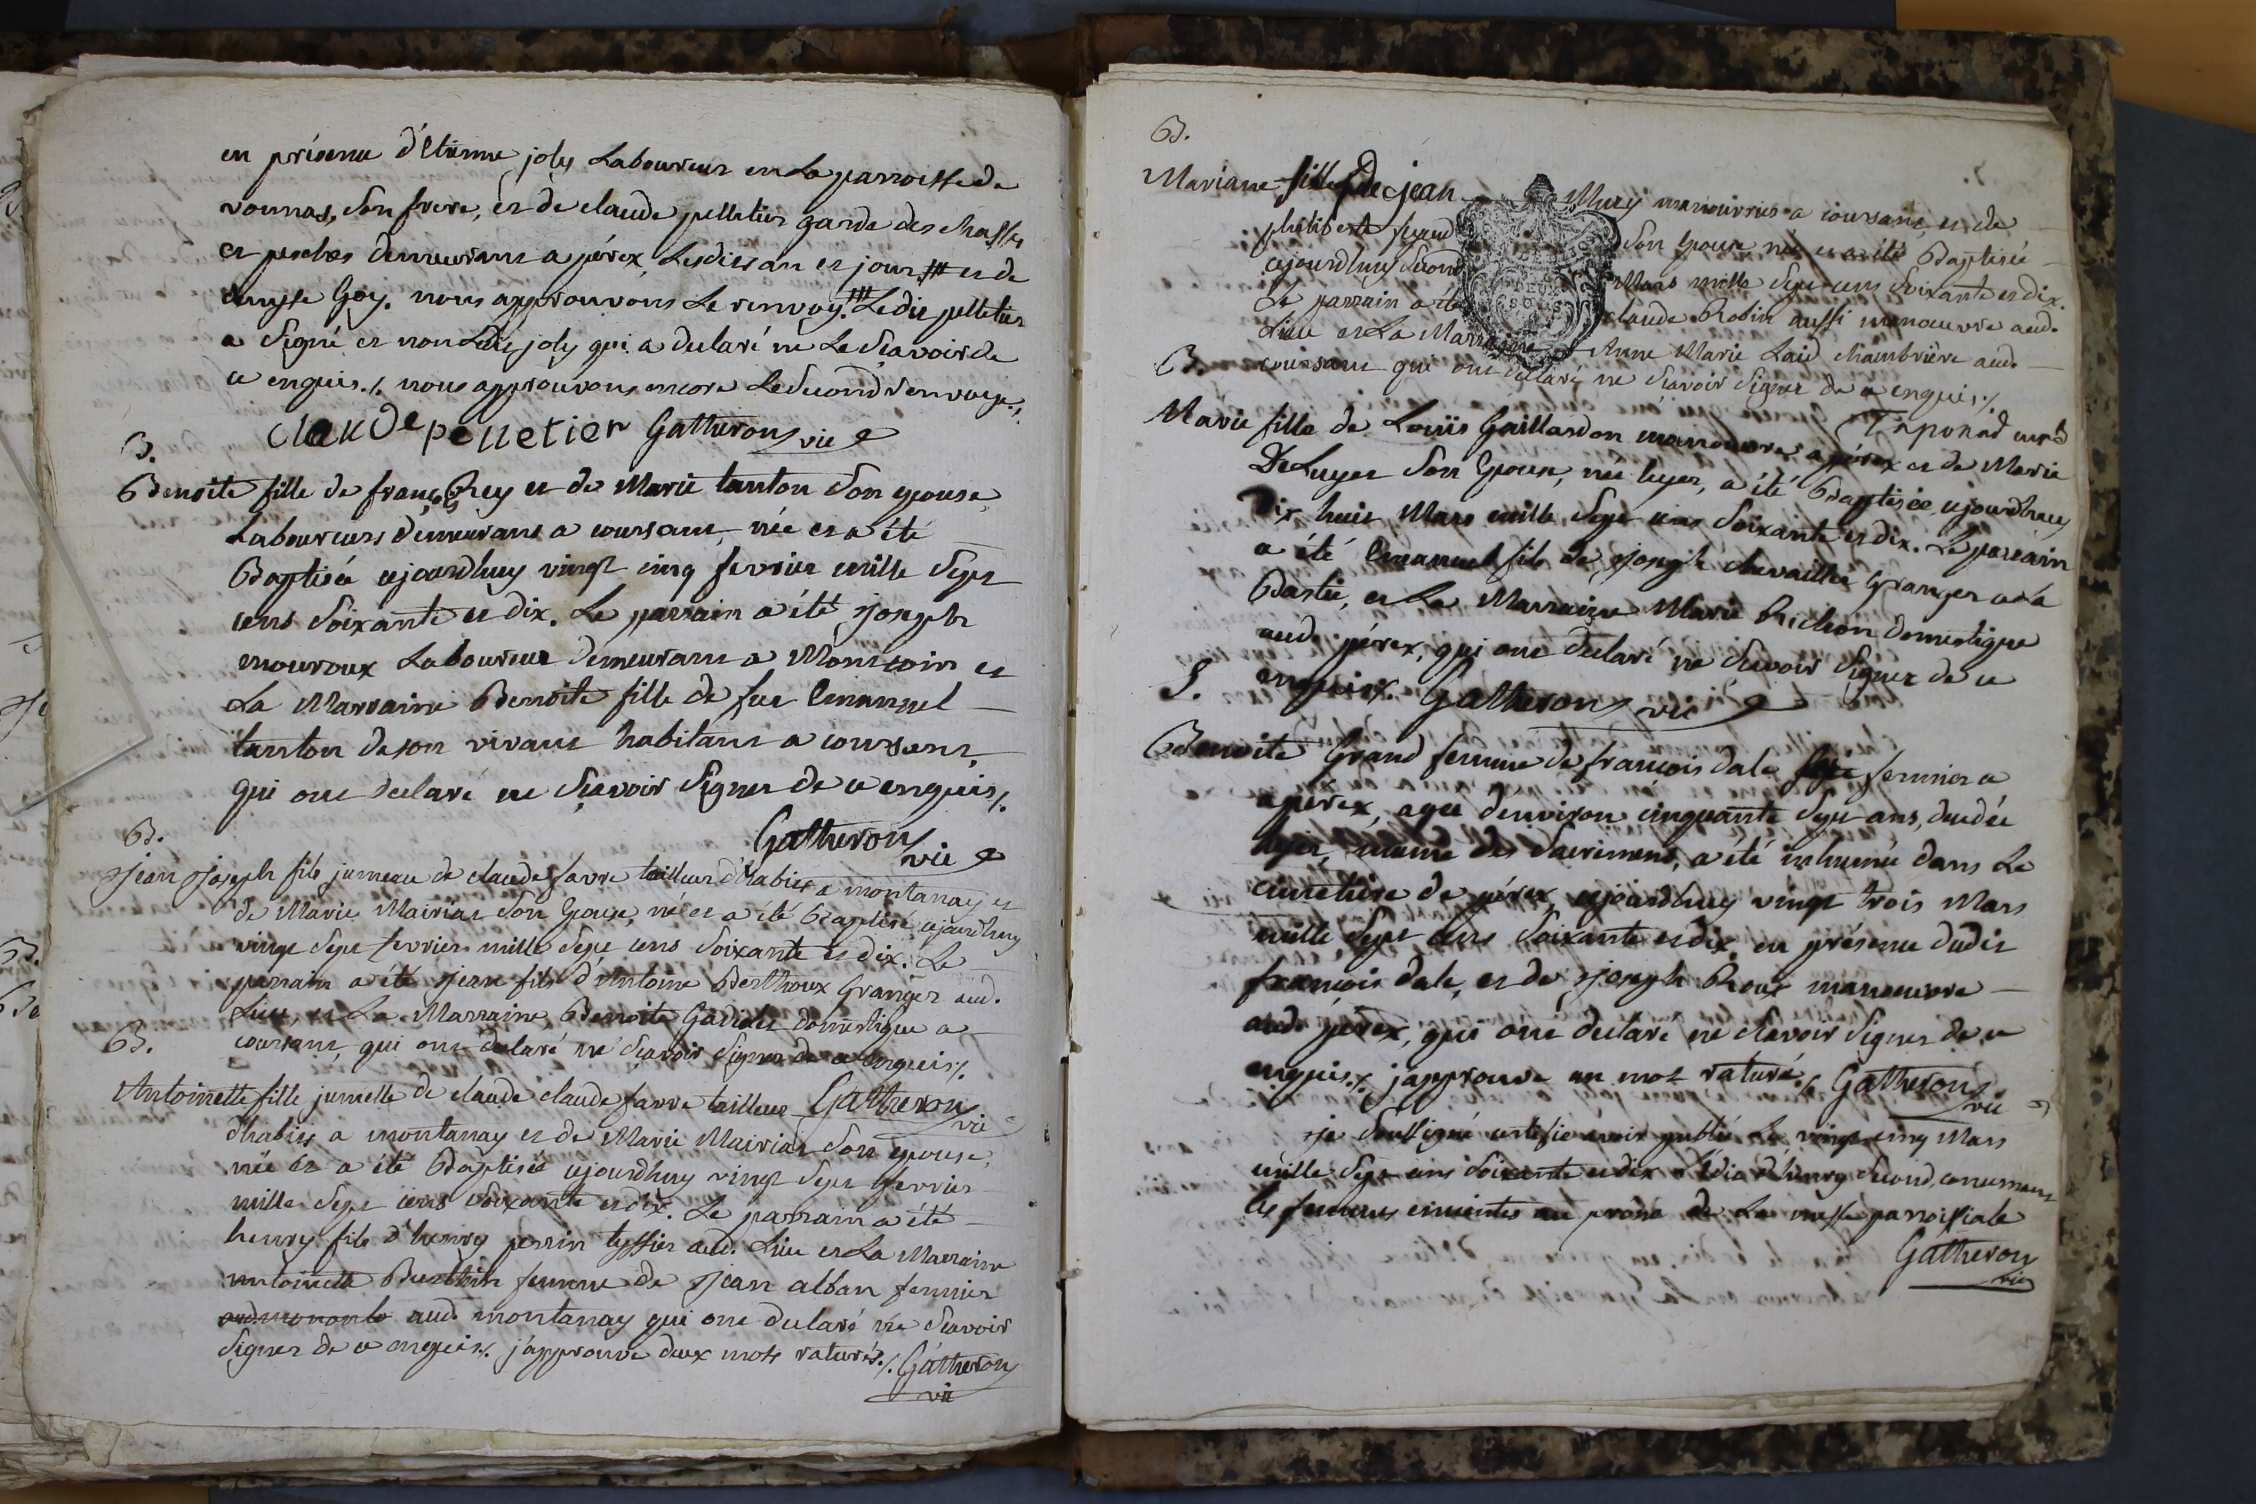 en présence d'Etienne joly Laboureur en La parroisse de
vonnas, son frere, et de claude pelletier garde des chasses
et pesches demeurans a pérex, Lesdits an et jour et de
Goy. nous approuvons Le renvoy. Ledit pelletier
a signé et non Ledit joly qui a declaré ne Le sçavoir de
ce enquis ./. nous approuvons encore Le second renvoye ./.
clauDe pelletier Gatheron vic
B.
Benoite fille de franç. Rey et de Marie tanton son epouse
Laboureurs demeurans a coursant, née et a été
Baptisée ajourdhuy vingt cinq fevrier mille sept
cens soixante et dix. Le parrain a été joseph
mouroux Laboureur demeurant a Montcoin et
La Marraine Benoite fille de feu Emanuel
tanton de son vivant habitant a coursant,
qui ont declaré ne sçavoir signer de ce enquis ./.
Gatheron vic
B.
jean joseph fils jumeau de claude favre tailleur d'habits a montanay et
de Marie Mairiat son Epouse, né et a été Baptisé ajourdhuy
vingt sept fevrier mille sept cens soixante et dix. Le
parrain a été jean fils d'Antoine Berthoux Granger aud.
Lieu, et La Marraine Benoite domestique a
coursant, qui ont declaré ne sçavoir signer de ce enquis ./.
B.
Gatheron vic
Antoinette fille jumelle de claude claude favre tailleur
dhabits a montanay et de Marie Mairiat son epouse,
née et a été Baptisée ajourdhuy vingt sept fevrier
mille sept cens soixante et dix. Le parrain a été
henry fils d'henry perrin tyssier aud. Lieu et La Marraine
antoinette Berthin femme de jean alban fermier
aud. montanay qui ont declaré ne sçavoir
signer de ce enquis ./. j'approuve deux mots raturés ./. Gatheron
vic
B.
Mariane fille de jean Murij manouvrier a coursant et de
philiberte son Epouse née et a été Baptisée
ajourdhuy second Mars mille sept cens soixante et dix.
Le parrain a été claude Robin aussi manoeuvre aud.
Lieu et La Marraine Anne Marie Laid chambrière aud.
coursant qui ont declaré ne sçavoir signer de ce enquis ./.
B.
Taponad curé
Marie fille de Louïs Gaillardon manouvre a pérex et de Marie
DeLuyer son Epouse, née hyer, a été Baptisée ajourdhuy
Dix huit Mars mille sept cens soixante et dix. Le parrain
a été Emanuel fils de joseph chevailler Granger a la
Bastie, et La Marraine Marie Richon domestique
aud. pérex, qui ont declaré ne sçavoir signer de ce
enquis ./. Gatheron vic
S.
Benoite Grand femme de francois dale fermier a
a pérex, agée d'environ cinquante sept ans, decedée
hyer, munie des sacrimens, a été inhumée dans Le
cimetiere de pérex, ajourdhuy vingt trois Mars
mille sept cens soixante et dix, en présence dudit
françois dale, et de joseph Roux manoeuvre
aud. pérex, qui ont declaré ne sçavoir signer de ce
enquis ./. japprouve un mot raturé ./. Gatheron
vic
je soussigné certifie avoir publié Le vingt cinq Mars
mille sept cens soixante et dix L'Edit d'henry second, concernant
les femmes enceintes au prône de La messe paroissiale
Gatheron
vic